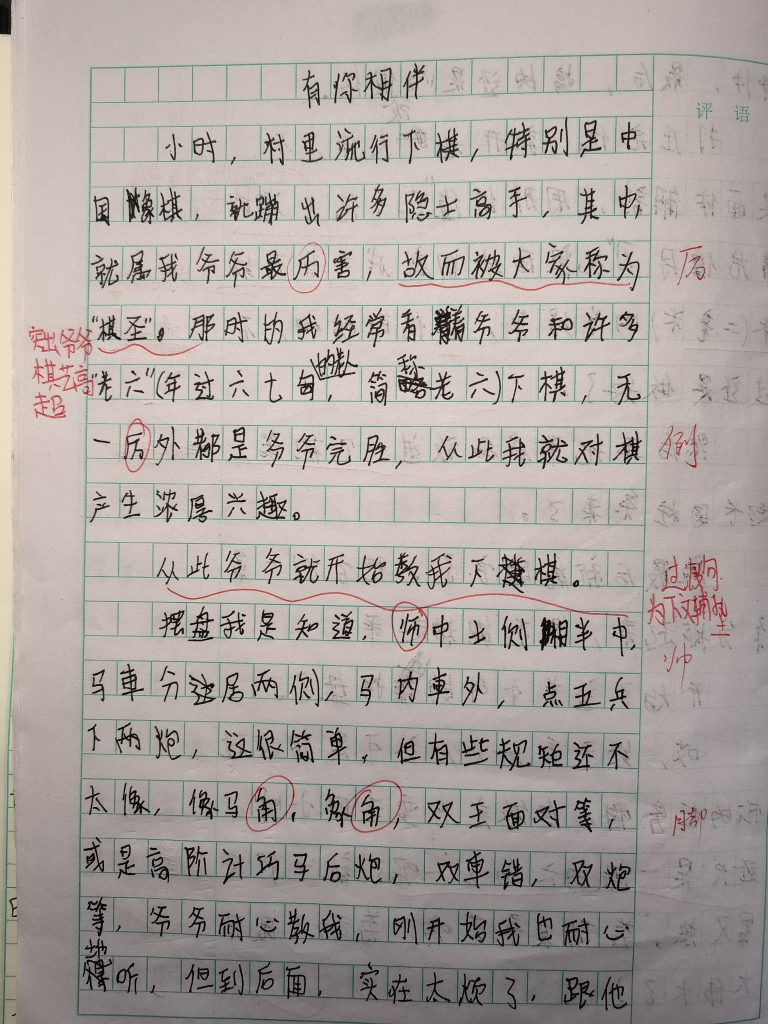 评语
有你相伴
小时，村里流行下棋，特别是中
国象棋，就蹦出许多隐士高手，其中，
就属我爷爷最历害，故而被大家称为
厉
"棋圣"。那时的我经常看着爷爷和许多
突出爷爷
棋艺高
超
"老六"(年过六七旬的老人，简称老六)下棋，无
一历外都是爷爷完胜，从此我就对棋
例
产生浓厚兴趣。
从此爷爷就开始教我下棋。
过渡句
为下文铺垫
摆盘我是知道，师中士侧相半中，
帅
马車分这居两侧，马内車外，点五兵
下两炮，这很简单，但有些规矩还不
太像，像马角，象角，双王面对等，
脚
或是高阶计巧马后炮，双車错，双炮
等，爷爷耐心教我，刚开始我也耐心
地听，但到后面，实在太烦了，跟他